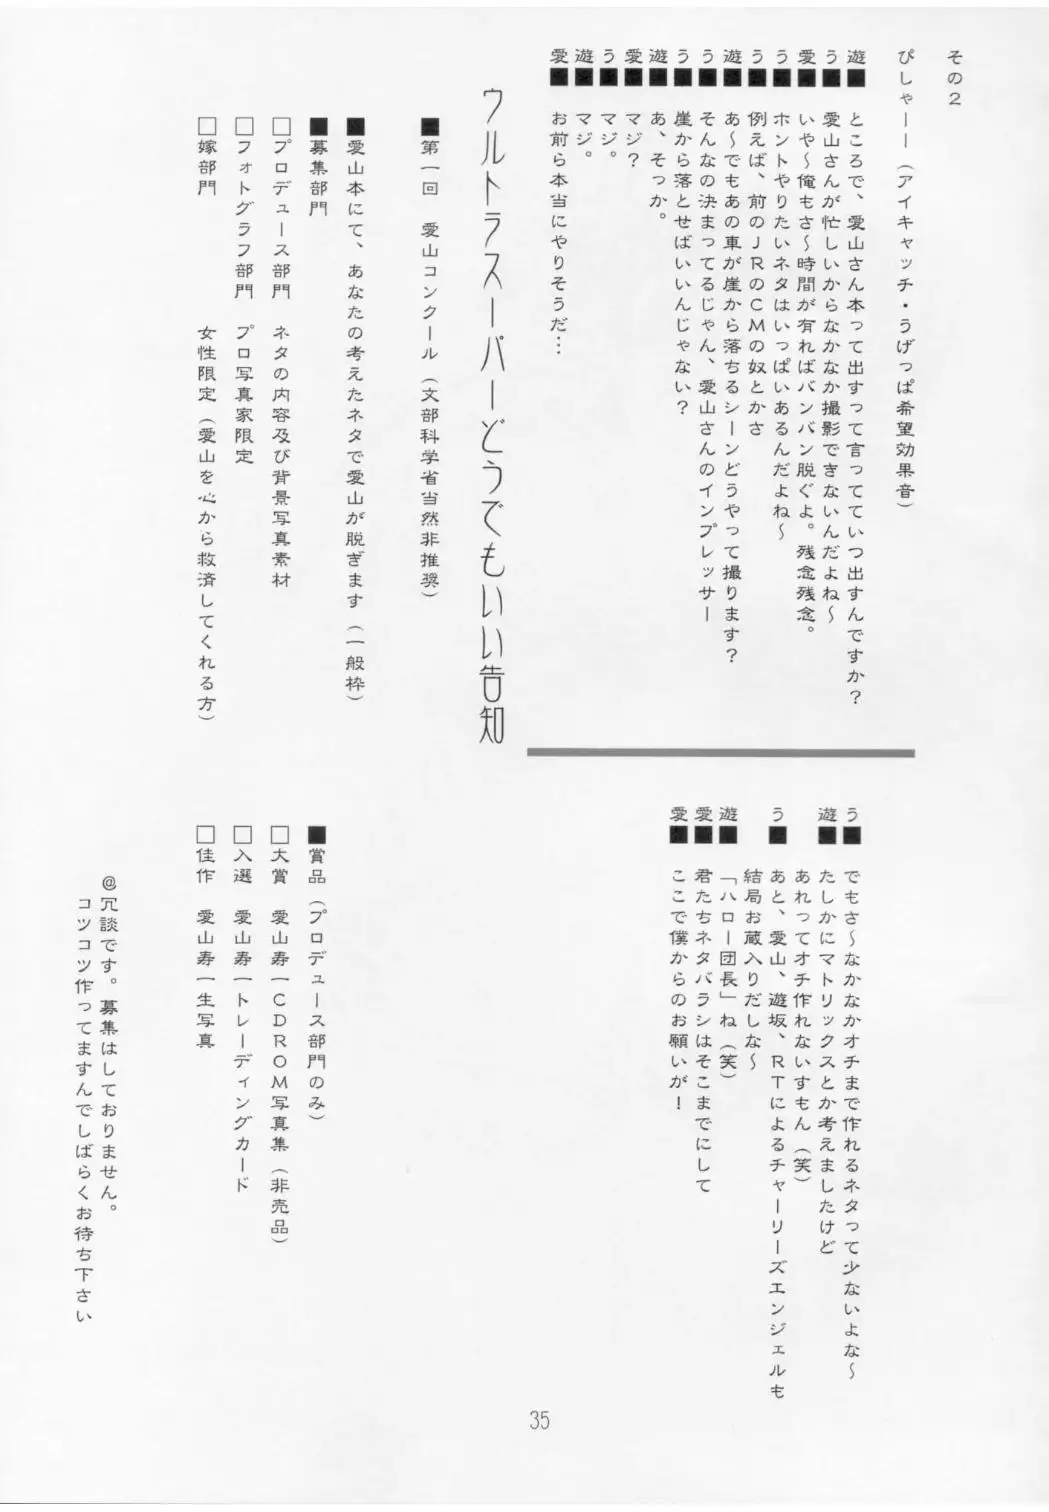 その2
ぴしゃーー(アイキャッチ・うげっぱ希望効果音)
遊■ ところで、愛山さん本って出すって言ってていつ出すんですか?
う■ 愛山さんが忙しいからなかなか撮影できないんだよね〜
愛■ いや〜俺もさ〜時間が有ればバンバン脱ぐよ。残念残念。
う■ ホントやりたいネタはいっぱいあるんだよね〜
う■ 例えば、前のJRのCMの奴とかさ
遊■ あ〜でもあの車が崖から落ちるシーンどうやって撮ります?
う■ そんなの決まってるじゃん、愛山さんのインプレッサー
う■ 崖から落とせばいいんじゃない?
遊■ あ、そっか。
愛■ マジ?
う■ マジ。
遊■ マジ。
愛■ お前ら本当にやりそうだ…
う■ でもさ〜なかなかオチまで作れるネタって少ないよな〜
遊■ たしかにマトリックスとか考えましたけど
あれってオチ作れないすもん(笑)
う■ あと、愛山、遊坂、RTによるチャーリーズエンジェルも
結局お蔵入りだしな〜
遊■ 「ハロー団長」ね(笑)
愛■ 君たちネタバラシはそこまでにして
愛■ ここで僕からのお願いが!
ウルトラスーパーどうでもいい告知
■第一回 愛山コンクール(文部科学省当然非推奨)
■愛山本にて、あなたの考えたネタで愛山が脱ぎます(一般枠)
■募集部門
□プロデュース部門 ネタの内容及び背景写真素材
□フォトグラフ部門 プロ写真家限定
□嫁部門 女性限定(愛山を心から救済してくれる方)
■賞品(プロデュース部門のみ)
□大賞 愛山寿一CDROM写真集(非売品)
□入選 愛山寿一トレーディングカード
□佳作 愛山寿一生写真
@冗談です。募集はしておりません。
コツコツ作ってますんでしばらくお待ち下さい
35